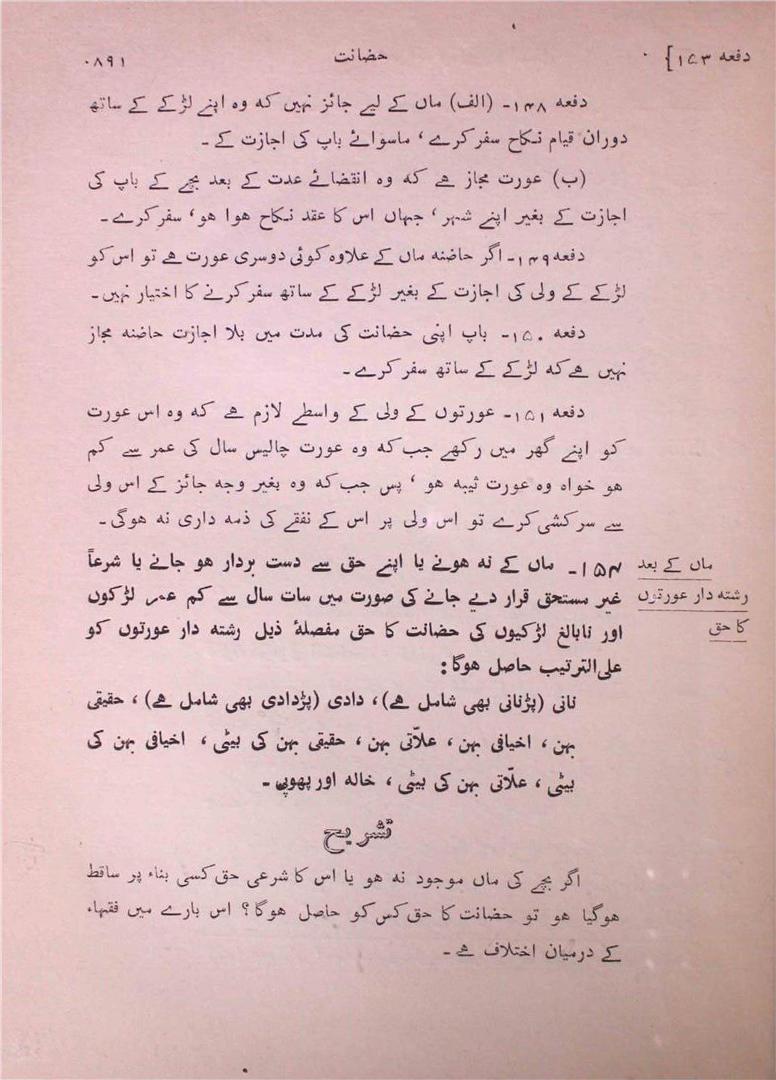 دفعہ ۱۵۳] حضانت ۰۸۹۱
دفعہ ۱۴۸۔ (الف) ماں کے لیے جائز نہیں کہ وہ اپنے لڑکے کے ساتھ
دوران قیام نکاح سفر کرے، ماسوائے باپ کی اجازت کے۔
(ب) عورت مجاز ہے کہ وہ انقضائے عدت کے بعد بچے کے باپ کی
اجازت کے بغیر اپنے شہر، جہاں اس کا عقد نکاح ہوا ہو، سفر کرے۔
دفعہ ۱۴۹۔ اگر حاضنہ ماں کے علاوہ کوئی دوسری عورت ہے تو اس کو
لڑکے کے ولی کی اجازت کے بغیر لڑکے کے ساتھ سفر کرنے کا اختیار نہیں۔
دفعہ ۱۵۰۔ باپ اپنی حضانت کی مدت میں بلا اجازت حاضنہ مجاز
نہیں ہے کہ لڑکے کے ساتھ سفر کرے۔
دفعہ ۱۵۱۔ عورتوں کے ولی کے واسطے لازم ہے کہ وہ اس عورت
کو اپنے گھر میں رکھے جب کہ وہ عورت چالیس سال کی عمر سے کم
ہو خواہ وہ عورت ثیبہ ہو، پس جب کہ وہ بغیر وجہ جائز کے اس ولی
سے سرکشی کرے تو اس ولی پر اس کے نفقے کی ذمہ داری نہ ہوگی۔
ماں کے بعد
رشتہ دار عورتوں
کا حق
۱۵۴۔ ماں کے نہ ہونے یا اپنے حق سے دست بردار ہو جانے یا شرعاً
غیر مستحق قرار دیے جانے کی صورت میں سات سال سے کم عمر لڑکوں
اور نابالغ لڑکیوں کی حضانت کا حق مفصلۂ ذیل رشتہ دار عورتوں کو
علی الترتیب حاصل ہوگا:
نانی (پڑنانی بھی شامل ہے)، دادی (پڑدادی بھی شامل ہے)، حقیقی
بہن، اخیافی بہن، علاّتی بہن، حقیقی بہن کی بیٹی، اخیافی بہن کی
بیٹی، علاّتی بہن کی بیٹی، خالہ اور پھوپی۔
تشریح
اگر بچے کی ماں موجود نہ ہو یا اس کا شرعی حق کسی بناء پر ساقط
ہوگیا ہو تو حضانت کا حق کس کو حاصل ہوگا؟ اس بارے میں فقہاء
کے درمیان اختلاف ہے۔